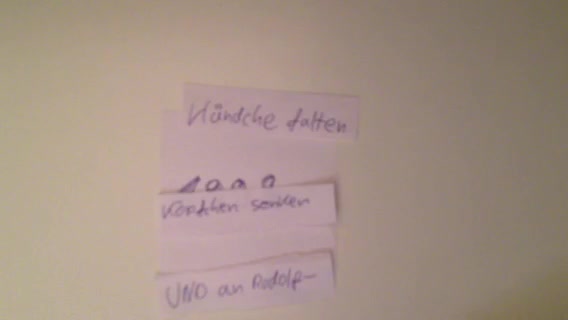 Händche falten
Köpfchen senken
UND an Rudolf-